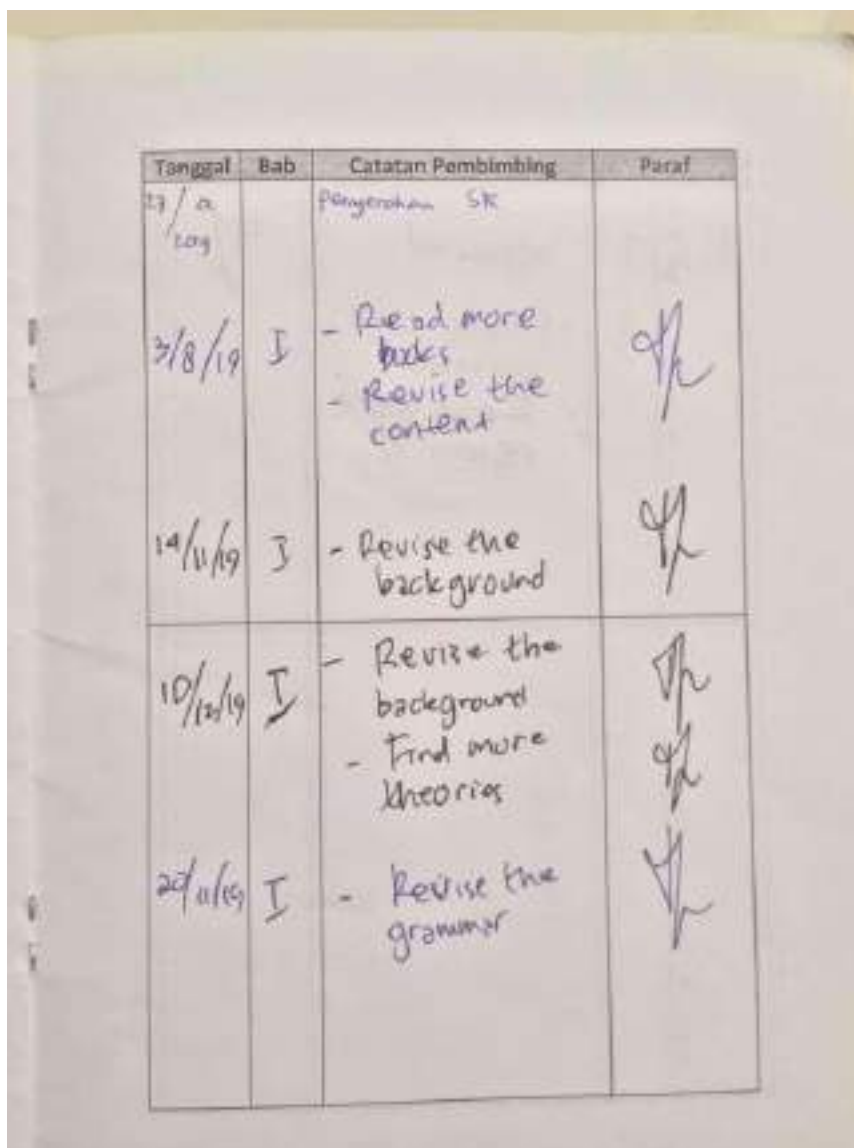 Tanggal Bab Catatan Pembimbing Paraf
Penyerahan SK
2019
3/8/19 I - Read more
books
- Revise the
content
14/11/19 I - Revise the
background
10/12/19 I - Revise the
background
- Find more
theories
I - Revise the
grammar